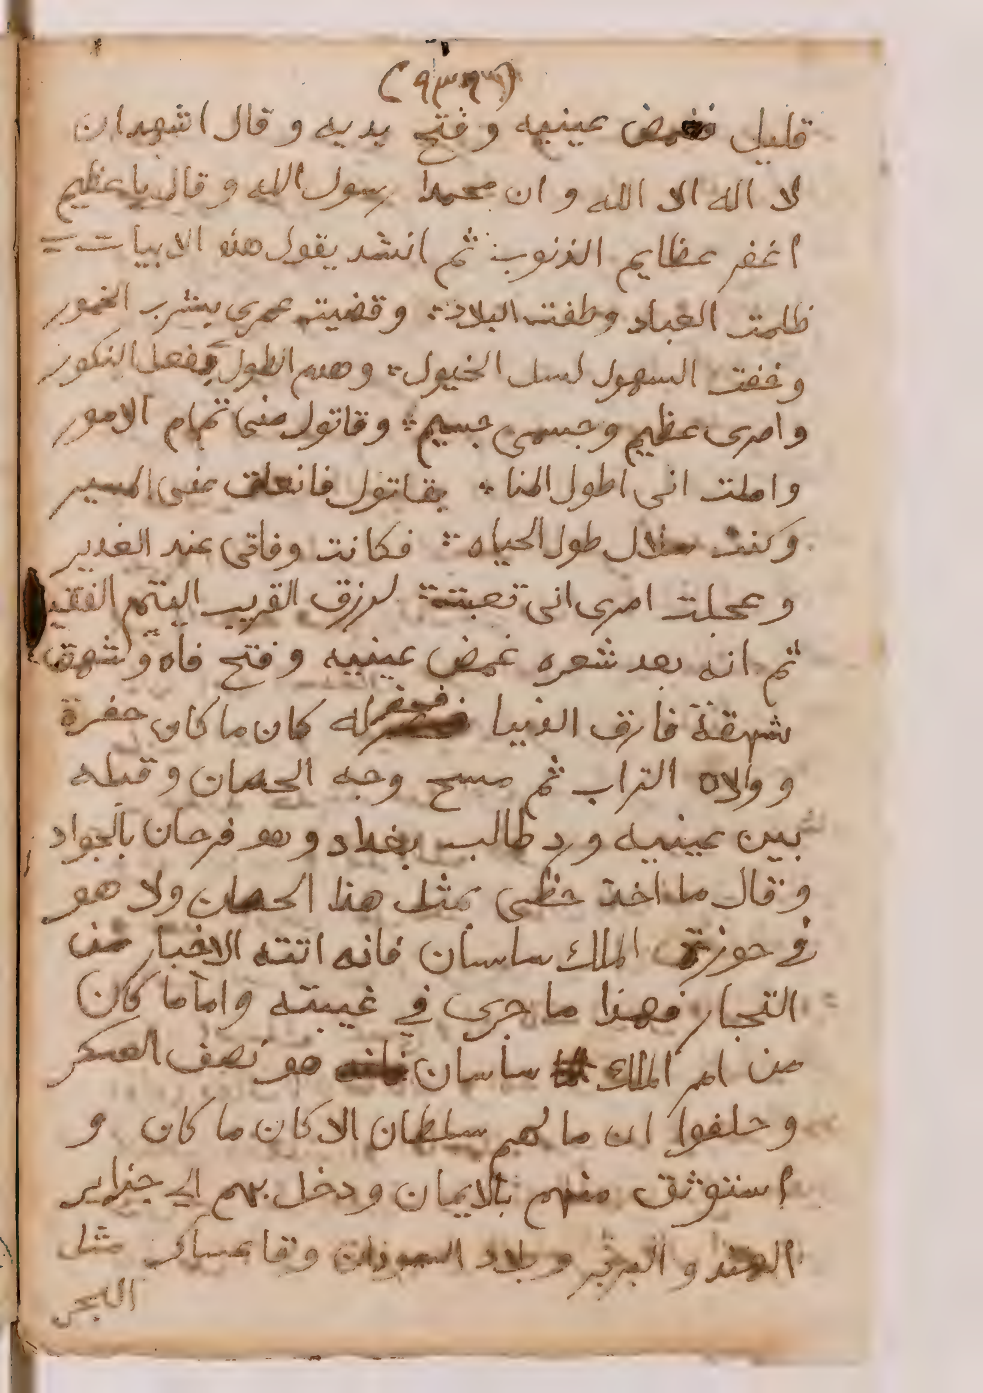 قليل فغمض عينيه وفتح يديه وقال اشهد ان
لا اله الا الله وان محمدا رسول الله وقال يا عظيم
اغفر عظايم الذنوب ثم انشد يقول هذه الابيات
ظلمت العباد وطفت البلاد وقضيت عمري بشرب الخمور
وخفت السهول لسل الخيول وهدم الطول بفعل النكور
وامرى عظيم وجسمى جسيم وقاتول منى تمام الامور
واملت انى اطول المنا بقاتول فانعاق منى المسير
وكنت طول الحياه فكانت وفاتي عند الغدير
وعجلت امرى انى تعبت لرزق القريب اليتيم الفقير
ثم انه بعد شعره غمض عينيه وفتح فاه وشهق
شهقة فارق الدنيا فحفر له كان ما كان حفرة
ووالاه التراب ثم مسح وجه الحصان وقبله
بين عينيه ورد طالب بغداد وهو فرحان بالجواد
وقال ما اخذ حظى بمثل هذا الحصان ولا هو
في حوزت الملك ساسان فانه اتته الاخبار من
التجار فهذا ما جرى في غيبته واما ما كان
من امر الملك ساسان فانه هو نصف العسكر
وحلفوا ان ما لهم سلطان الا كان ما كان و
استوثق منهم بالايمان ودخل بهم الي جزاير
الهند والبربر وبلاد السودان وتقا عساكر مثل
البحر